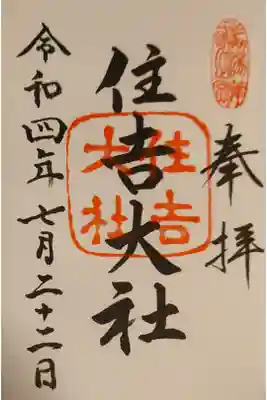 奉拝
住吉大社
住吉
大社
令和四年七月二十二日